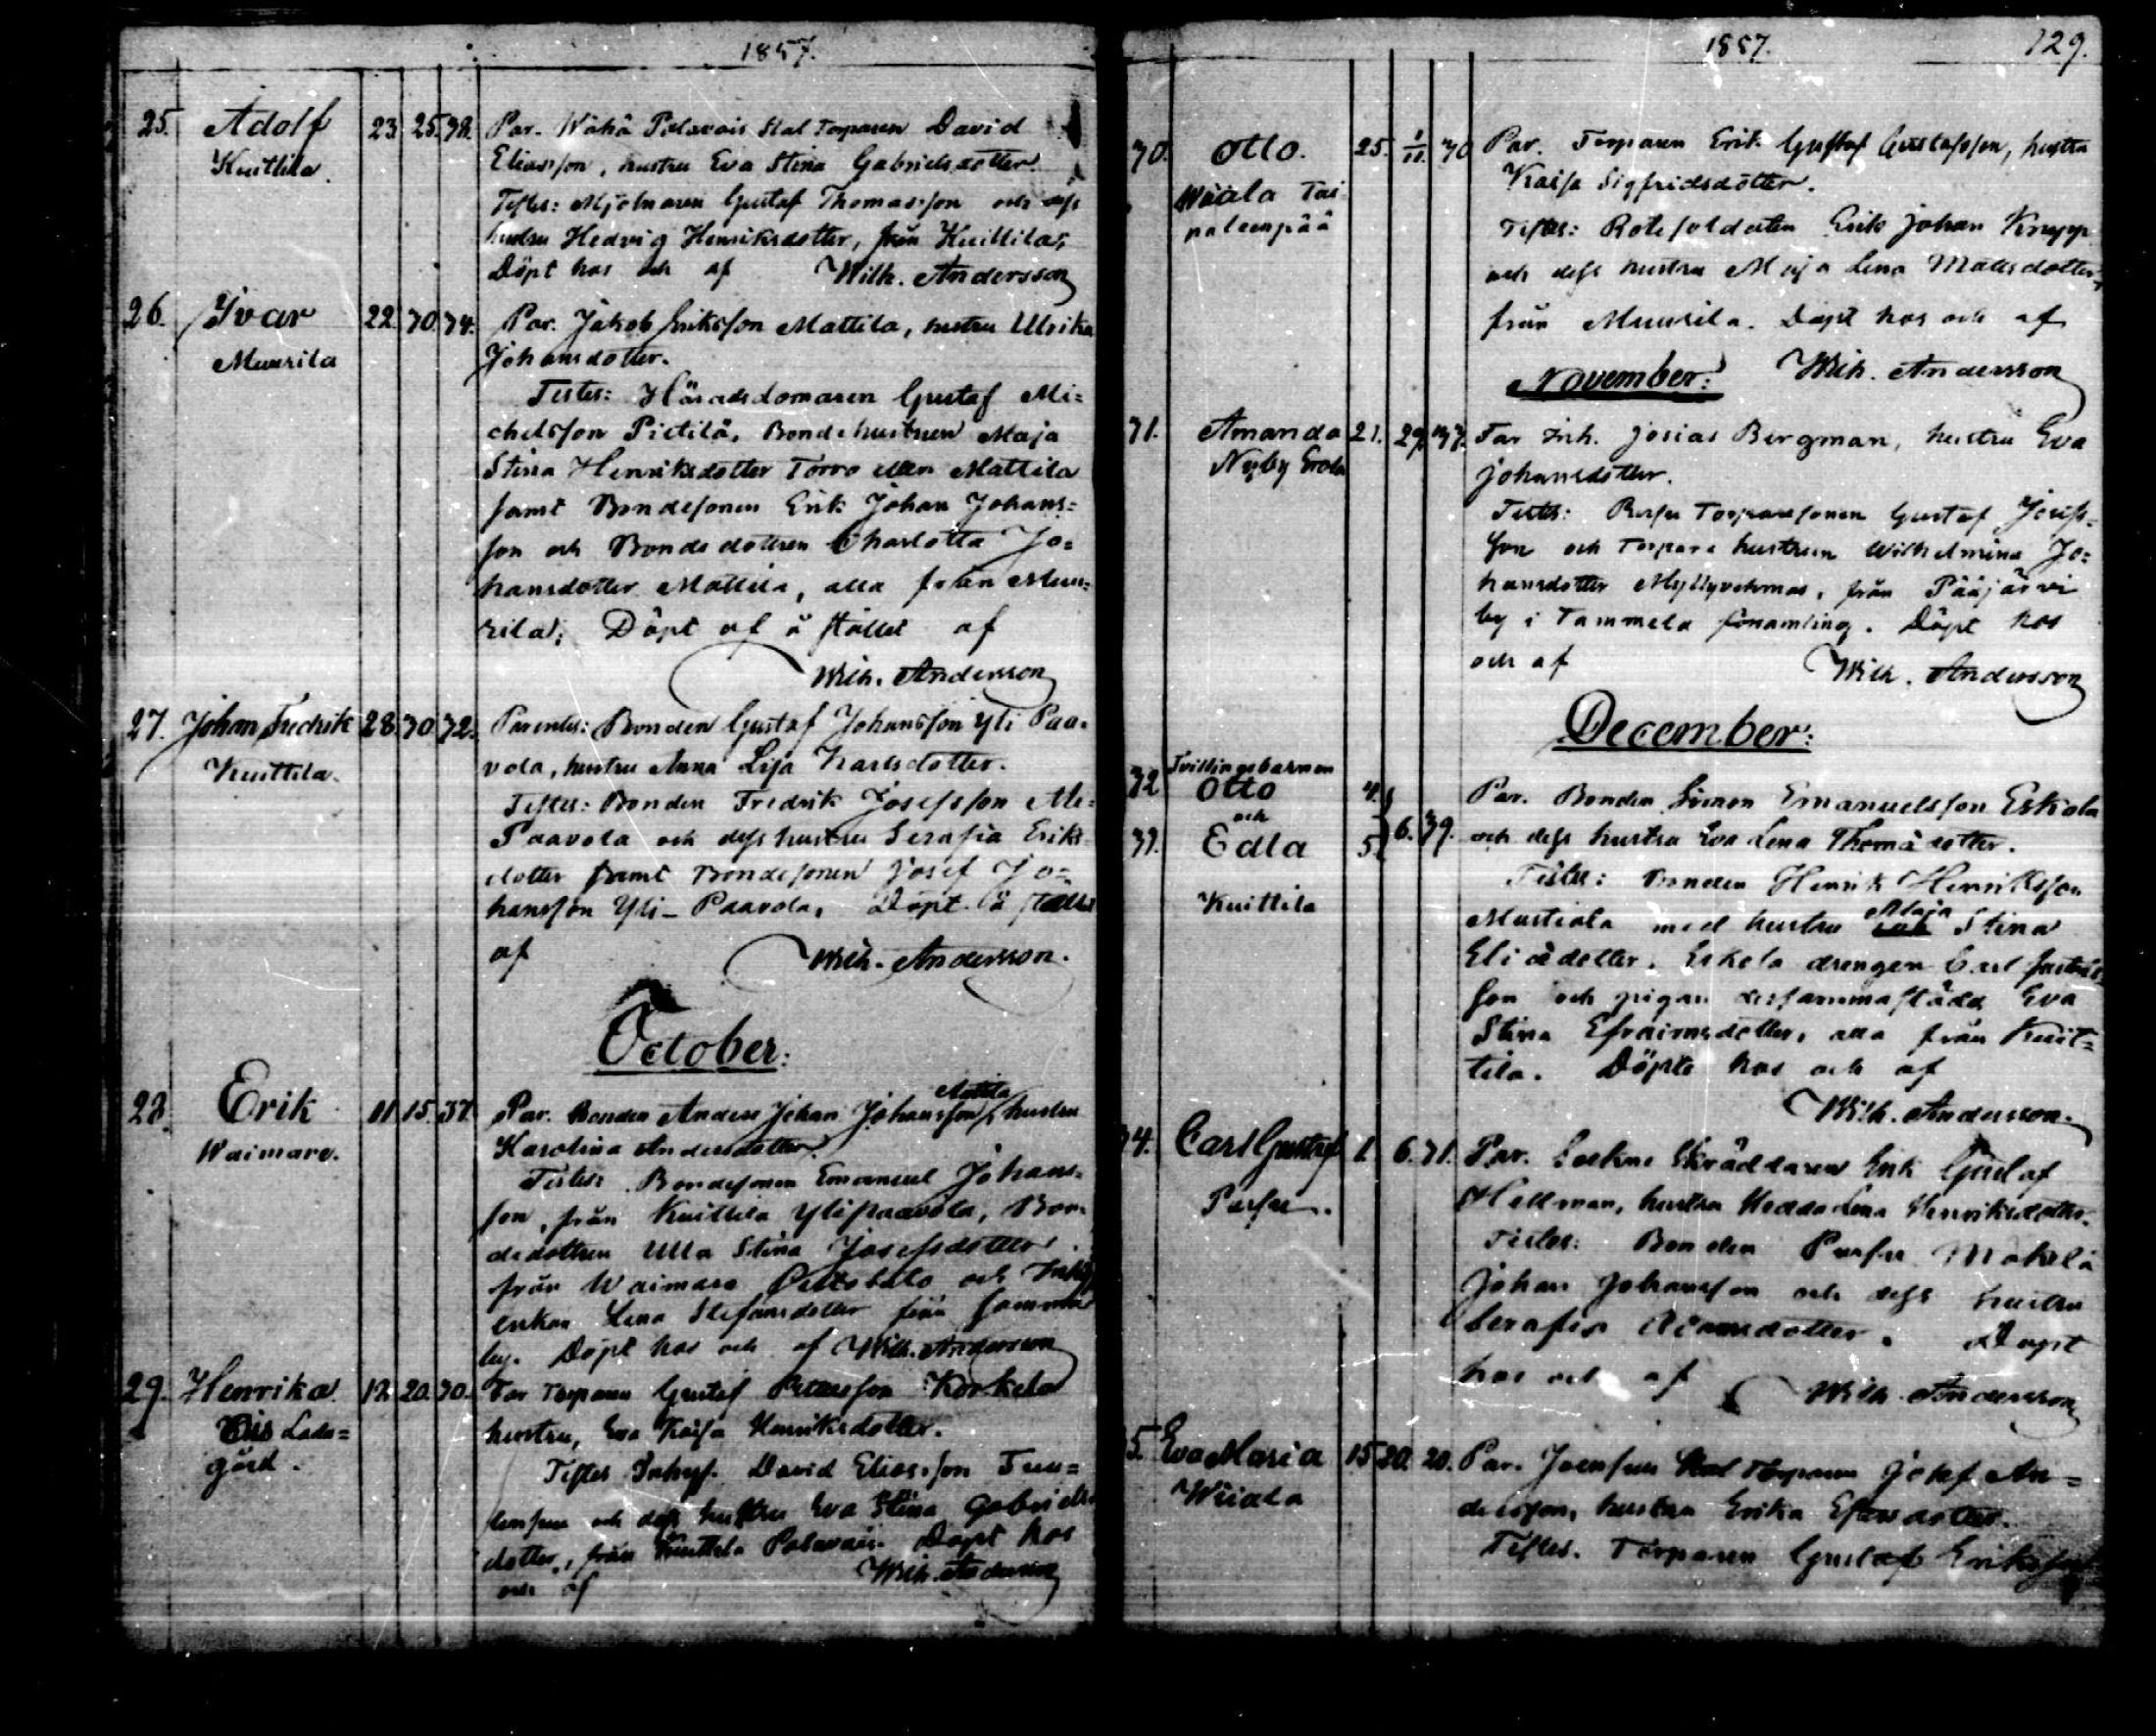 1857.
25. Adolf 23 25. 38. Par. Wähä Palavais Stat Torparen David
Kuittila. Eliasson, hustru Eva Stina Gabrielsdotter.
Testes: Mjölnaren Gustaf Thomasson och dess
hustru Hedvig Henriksdotter, från Kuittila;
Döpt hos och af Wilh. Andersson
26. Ivar 22. 30. 34. Par. Jakob Eriksson Mattila, hustru Ulrika
Muurila Johansdotter.
Testes: Häradsdomaren Gustaf Mi=
chelsson Pietilä, Bondehustrun Maja
Stina Henriksdotter Torro eller Mattila
samt Bondesonen Erik Johan Johans=
son och Bondedottren Charlotta Jo=
hansdotter Mattila, alla från Muu=
rila; Döpt å stället af
Wilh. Andersson
27. Johan Fredrik 28. 30. 32. Parentes: Bonden Gustaf Johansson Yli Paa=
Kuittila. vola, hustru Anna Lisa Karlsdotter.
Testes: Bonden Fredrik Josefsson Ale=
Paavola och dess hustru Serafia Eriks
dotter samt Bondesonen Josef Jo=
hansson Yli-Paavola. Döpt å stället
af Wilh. Andersson.
October:
28. Erik 11. 15. 37. Par. Bonden Anders Johan Johansson Mattila hustru
Waimare. Karolina Andersdotter.
Testes: Bondesonen Emanuel Johans=
son, från Kuittila Ylipaavola, Bon=
dedottren Ulla Stina Josefsdotter
från Waimare och
enkan Lena Stefansdotter från samma
by. Döpt hos och af Wilh. Andersson
29. Henrika 12. 20. 30. Far Torparen Gustaf Pettersson Korkela
Ladu=
gård. hustru, Eva Kaisa Henriksdotter.
Testes Inhys. David Eliasson
och dess hustru Eva Stina Gabriels
dotter, från Kuittila Palavais. Döpt hos
och af Wilh. Andersson
1857. 129.
30. Otto. 25. 1/11. 30 Par. Torparen Erik Gustaf Gustafsson, hustru
Wiiala Tai
paleenpää Kaisa Sigfridsdotter.
Testes: Rotesoldaten Erik Johan Knypp
och dess hustru Maja Lena Mattsdotter,
från Muurila. Döpt hos och af
Wilh. Andersson
November:
31. Amanda 21. 29. 37. Far Inh. Josias Bergman, hustru Eva
Nyby Erola Johansdotter.
Testes: Torparesonen Gustaf Josefs=
son och Torpare hustrun Wilhelmina Jo=
hansdotter Myllyvehmas, från Pääjärvi
by i Tammela församling. Döpt hos
och af Wilh. Andersson
December:
Tvillingebarnen
32 Otto 4.
och
33. Edla 5. 6. 39.
Kuittila
Par. Bonden Simon Emanuelsson Eskola
och dess hustru Eva Lena Thomædotter.
Testes: Bonden Henrik Henriksson
Mustiala med hustru Maja Stina
Eliædotter, Eskola drengen Carl
son och pigan dersammastädd Eva
Stina Efraimsdotter, alla från Kuit=
tila. Döpta hos och af
Wilh. Andersson.
34. Carl Gustaf 1. 6. 31. Par. Socken Skräddaren Erik Gustaf
Hellman, hustru Hedda Lena Henriksdotter.
Testes: Bonden Mäkelä
Johan Johansson och dess hustru
Serafia Adamsdotter. Döpt
hos och af Wilh. Andersson
5. Eva Maria 15 20. 20. Par. Joensuu Stat Torparen Josef An=
Wiiala dersson, hustru Erika
Testes. Torparen Gustaf Eriksson